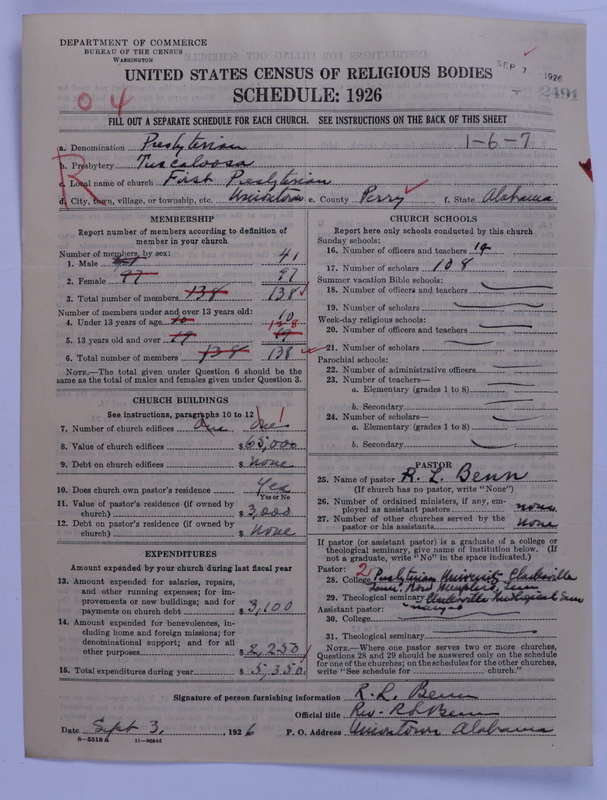 DEPARTMENT OF COMMERCE
BUREAU OF THE CENSUS
WASHINGTON
SEP 7 1926
2491
UNITED STATES CENSUS OF RELIGIOUS BODIES
SCHEDULE: 1926
0 4
FILL OUT A SEPARATE SCHEDULE FOR EACH CHURCH. SEE INSTRUCTIONS ON THE BACK OF THIS SHEET
1-6-7
R
a. Denomination Presbyterian
b. Presbytery Tuscaloosa
c. Local name of church First Presbyterian
d. City, town, village, or township, etc. Uniontown e. County Perry f. State Alabama
MEMBERSHIP
Report number of members according to definition of member in your church
Number of members, by sex:
1. Male 41
2. Female 97 97
3. Total number of members 138 138
Number of members under and over 13 years old:
4. Under 13 years of age 10
5. 13 years old and over 128
6. Total number of members 138 138
NOTE.—The total given under Question 6 should be
same as the total of males and females given under Question 3.
CHURCH BUILDINGS
See instructions, paragraphs 10 to 12
7. Number of church edifices One One 1
8. Value of church edifices $ 65,000
9. Debt on church edifices $ None
10. Does church own pastor's residence Yes
Yes or No
11. Value of pastor's residence (if owned by
church) $ 3,000
12. Debt on pastor's residence (if owned by
church) $ None
EXPENDITURES
Amount expended by your church during last fiscal year
13. Amount expended for salaries, repairs,
and other running expenses; for im-
provements or new buildings; and for
payments on church debt $ 3,100
14. Amount expended for benevolences, in-
cluding home and foreign missions; for
denominational support; and for all
other purposes $ 2,250
15. Total expenditures during year $ 5,350
CHURCH SCHOOLS
Report here only schools conducted by this church
Sunday schools:
16. Number of officers and teachers 14
17. Number of scholars 108
Summer vacation Bible schools:
18. Number of officers and teachers
19. Number of scholars
Week-day religious schools:
20. Number of officers and teachers
21. Number of scholars
Parochial schools:
22. Number of administrative officers
23. Number of teachers—
a. Elementary (grades 1 to 8)
b. Secondary
24. Number of scholars—
a. Elementary (grades 1 to 8)
b. Secondary
PASTOR
25. Name of pastor R. L. Benn
(If church has no pastor, write "None")
26. Number of ordained ministers, if any, em-
ployed as assistant pastors none
27. Number of other churches served by the
pastor or his assistants none
If pastor (or assistant pastor) is a graduate of a college or
theological seminary, give name of institution below. (If
not a graduate, write "No" in the space indicated.)
Pastor: 2
28. College Presbyterian University Clarksville
Tenn. Now Memphis, Tenn
29. Theological seminary Clarksville Theological Sem
Assistant pastor:
30. College
31. Theological seminary
NOTE.—Where one pastor serves two or more churches,
Questions 28 and 29 should be answered only on the schedule
for one of the churches; on the schedules for the other churches,
write "See schedule for church."
Signature of person furnishing information R. L. Benn
Official title Rev. R L Benn
Date Sept 3, 1926 P. O. Address Uniontown Alabama
6—5518a